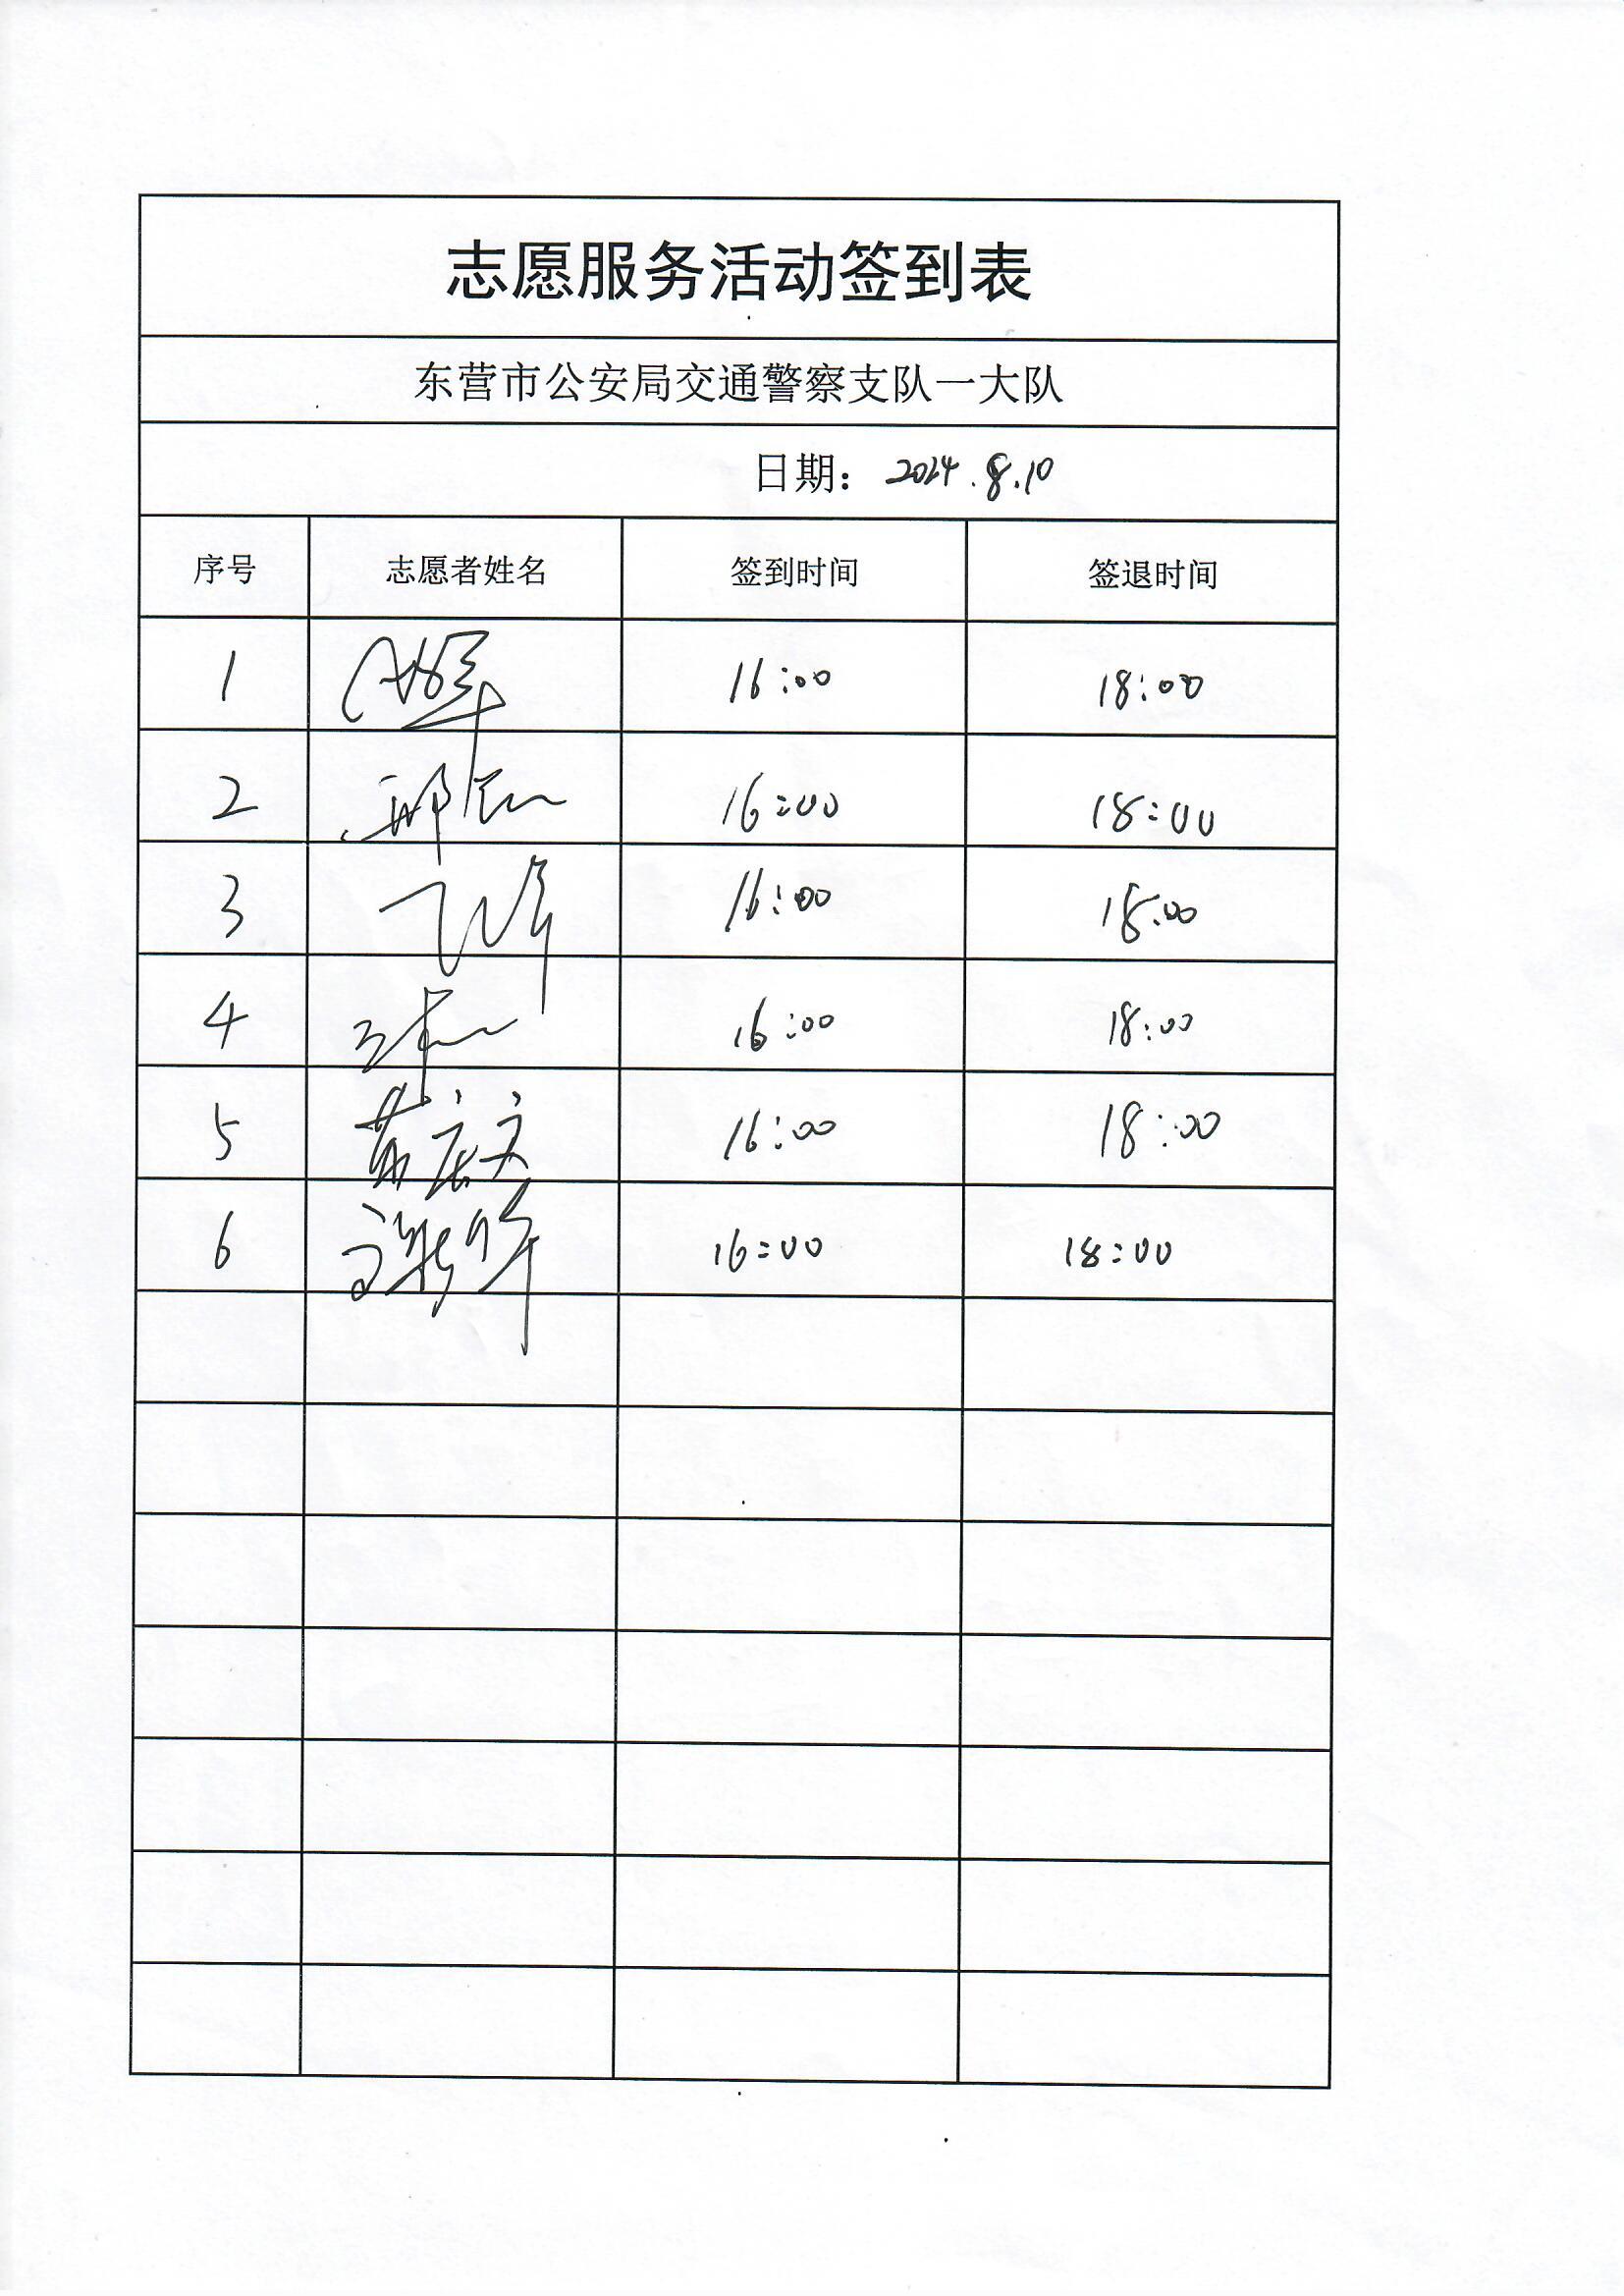 志愿服务活动签到表
东营市公安局交通警察支队一大队
日期：2024.8.10
序号 志愿者姓名 签到时间 签退时间
1 16:00 18:00
2 16:00 18:00
3 16:00 18:00
4 16:00 18:00
5 16:00 18:00
6 16:00 18:00